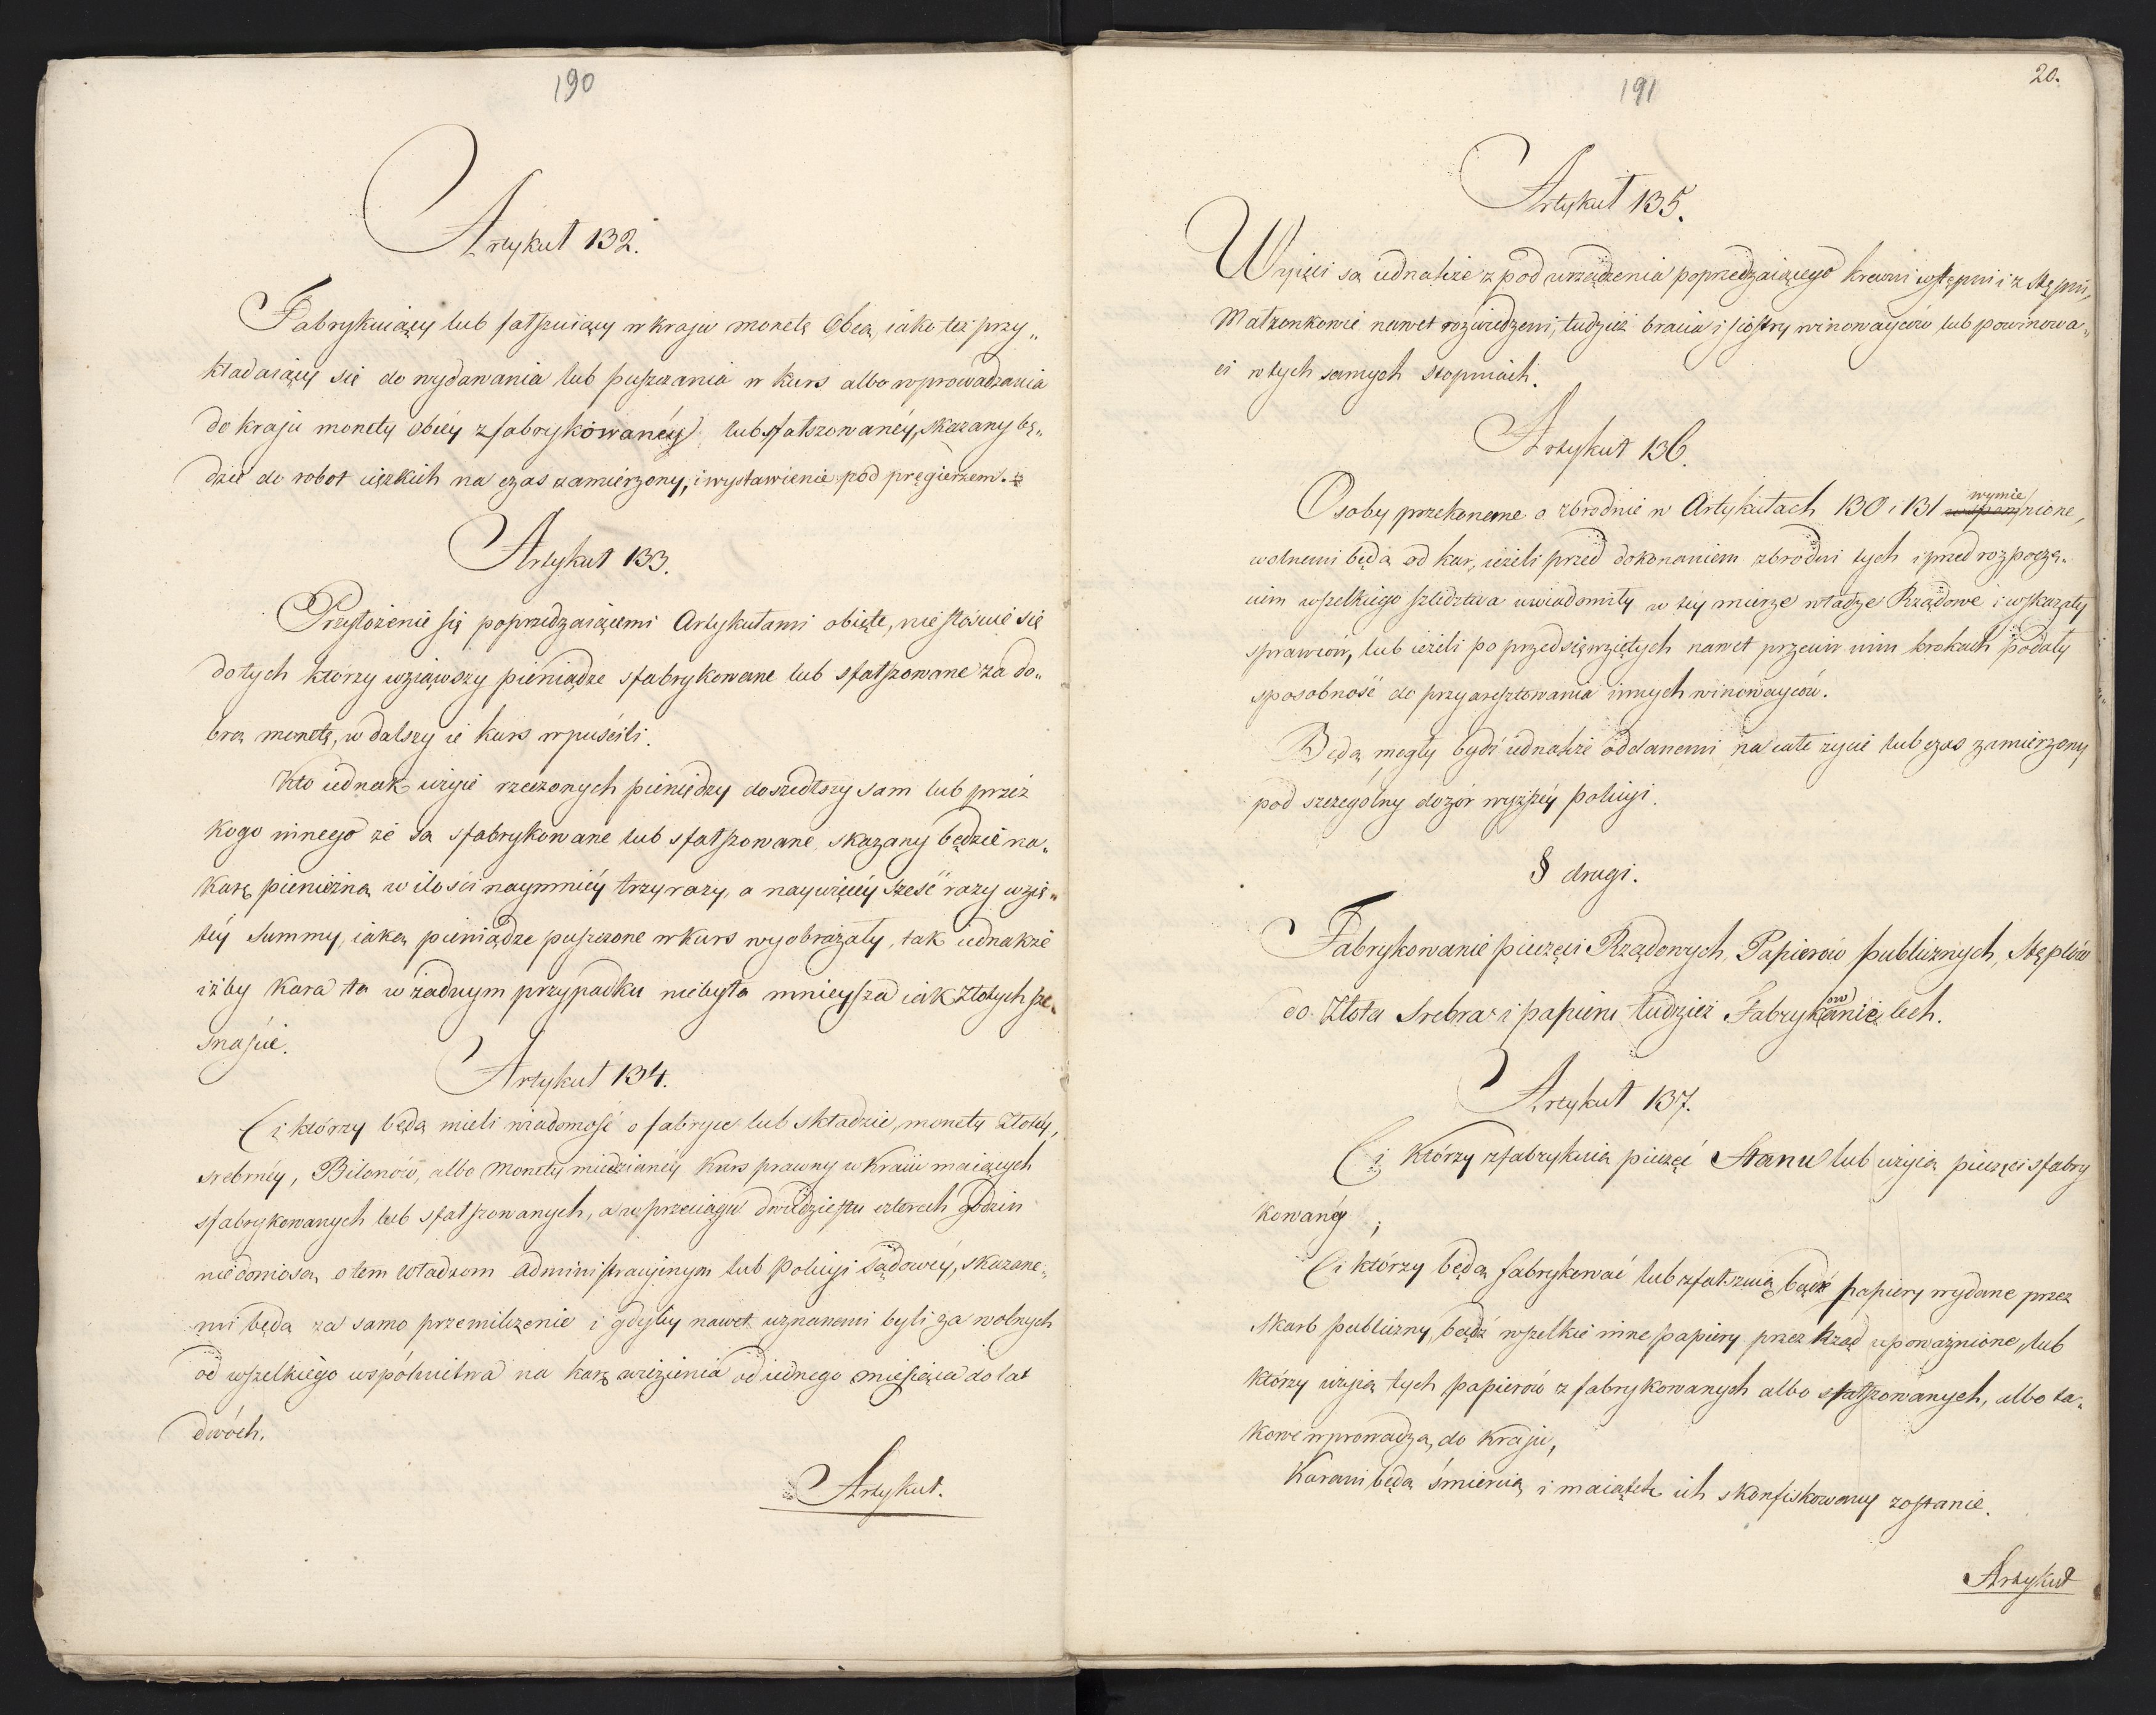 190
Artykuł 132.
Fabrykuiący lub fałszuiący w kraju monetę Obcą, iako też przy„
kładaiący się do wydawania lub puszczania w kurs albo wprowadzania
do kraju monety obcéy zfabrykowanéy lub sfałszowanéy, skazany bę„
dzie do robot ciężkich na czas zamierzony, i wystawienie pod pręgierzem.
Artykuł 133.
Przyłożenie się poprzedzaiącemi Artykułami obięte, nie stósuie się
do tych którzy wziąwszy pieniądze sfabrykowane lub sfałszowane za do„
brą monetę, w dalszy ie kurs wpuścili.
Kto iednak użyie rzeczonych pieniędzy doszedłszy sam lub przez
kogo innego że są sfabrykowane lub sfałszowane, skazany będzie na„
karę pieniężną w ilości naymniéy trzy razy, a naywięcéy sześć razy wzię„
téy Summy, iaką pieniądze puszczone w kurs wyobrażały, tak iednakże
iżby kara ta w żadnym przypadku niebyła mnieysza iak Złotych sze„
snaście.
Artykuł 134.
Ci którzy będą mieli wiadomość o fabryce lub składzie, monety złotéy,
srebrnéy, Bilonów, albo Monety miedzianéy kurs prawny w Kraiu maiących
sfabrykowanych lub sfałszowanych, a w przeciągu dwudziestu czterech godzin
nie doniosą, o tem Władzom Administracyinym lub Policyi Sądowéy, skazane„
mi będą za samo przemilczenie i gdyby nawet uznanemi byli za wolnych
od wszelkiego wspólnictwa na karę więzienia od iednego miesiąca do lat
dwóch.
Artykuł.
191
20.
Artykuł 135.
Wyięci są iednakże z pod urządzenia poprzedzaiącego krewni wstępni i z stępni,
Małzonkowie nawet rozwiedzeni, tudzież bracia i siostry winowayców lub powinowa„
ci w tych samych stopniach.
Artykuł 136.
Osoby przekonane o zbrodnie w Artykułach 130 i 131 wymie
wspomnione,
wolnemi będą od kar, ieżeli przed dokonaniem zbrodni tych i przed rozpoczę„
ciem wszelkiego śledztwa uwiadomiły w téy mierze władze Rządowe i wskazały
sprawców, lub ieżeli po przedsięwziętych nawet przeciw nim krokach podały
sposobność do przyaresztowania innych winowayców.
Będą mogły bydź iednakże oddanemi na całe życie lub czas zamierzony
pod szczególny dozór wyższéy policyi.
§ drugi.
Fabrykowanie pieczęci Rządowych, Papierów publicznych, Stęplów
do Złota Srebra i papieru tudzież Fabrykowanie cech.
Artykuł 137.
Ci Którzy zfabrykuią pieczęć Stanu lub użyią pieczęci sfabry
kowanéy;
Ci którzy będą fabrykować lub zfałszuią bądź papiery wydane przez
Skarb publiczny, bądź wszelkie inne papiery przez Rząd upoważnione, lub
którzy użyią tych papierów zfabrykowanych albo sfałszowanych, albo ta„
kowe wprowadzą do kraju,
Karani będą śmiercią i maiątek ich skonfiskowany zostanie.
Artykuł